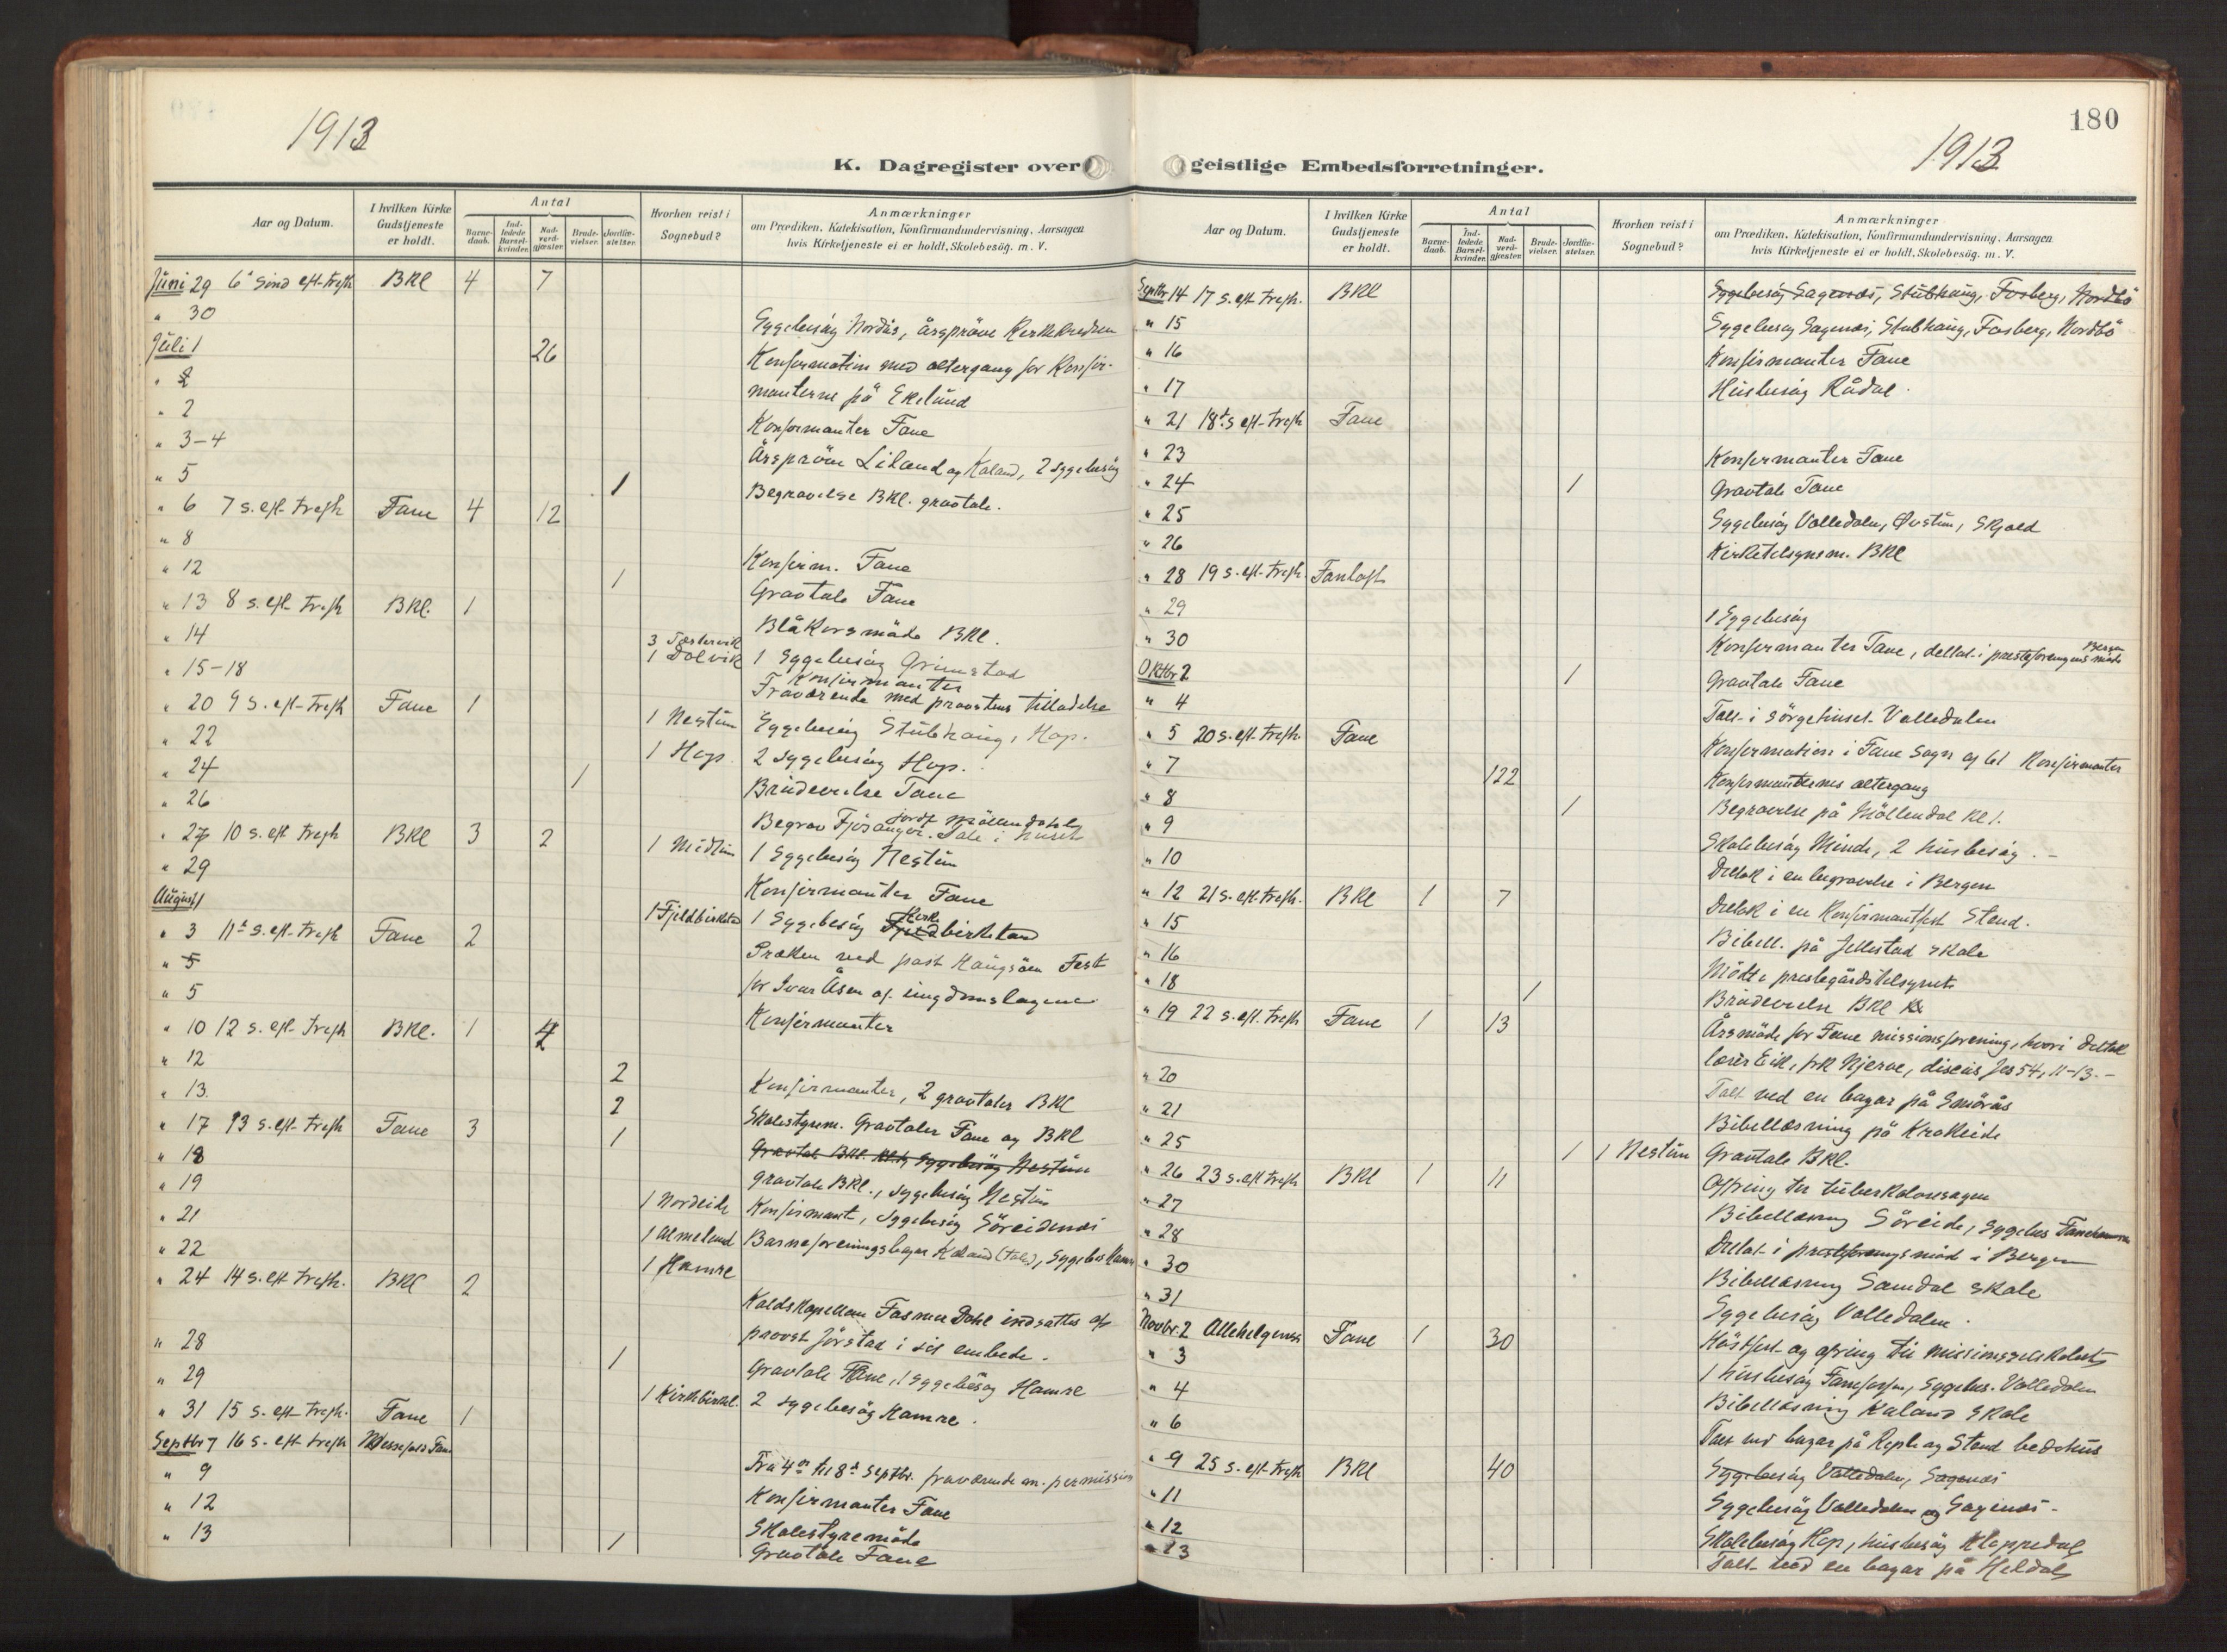 1913
K. Dagregister over
Aar og Datum.
I hvilken Kirke Gudstjeneste er holdt.
Antal
Barne-daab.
Ind-ledede Barsel-kvinder.
Nad-verd-gjæster.
Brude-vielser.
Jordfæ-stelser.
Hvorhen reist i Sognebud?
Anmærkninger
om Prædiken, Katekisation, Konfirmandundervisning, Aarsagen
hvis Kirketjeneste ei er holdt, Skolebesög. m. V.
Juni 29 6te Sönd eft. trefh BKl 4 7
" 30 Sygebesög Nordås, årspröve Kirkekredsen
Juli 1 26 Konfirmation med altergang for Konfir-
" 2 manterne på Ekelund
" 2 Konfirmanter Fane
" 3-4 Årspröve Liland og Kaland, 2 sygebesög
" 5 1 Begravelse BKl. gravtale.
" 6 7 s. eft trefh Fane 4 12
" 8 Konfirm. Fane
" 12 1 Gravtale Fane
" 13 8 s. eft. trefh BKl. 1 Blåkorsmöde BKl.
" 14 1 Dolvik 1 Sygebesög Grimstad
" 15-18 Konfirmanter
Fraværende med provstens tilladelse
" 20 9 s. eft. trefh Fane 1
" 22 1 Nestun Sygebesög Stubhaug, Hop.
" 24 1 Hop 2 sygebesög Hop.
" 26 1 Brudevielse Fane
" 27 10 s. eft trefh BKl 3 2 Begrav Fjösanger. Tale i huset
" 29 1 Midtun 1 Sygebesög Nestun
August 1 Konfirmanter Fane
" 3 11te s. eft. trefh Fane 2 1 Fjeldbirkeland 1 Sygebesög Kirkbirkeland
" 5
" 5 for Ivar Åsen af ungdomslagene
" 10 12 s. eft. trefh BKl. 1 4 Konfirmanter
" 12 2 Konfirmanter, 2 gravtaler BKl
" 13. 2 Skolestyrem. Gravtaler Fane og BKl
" 17 13 s. eft. trefh Fane 3 1 Gravtale BKl. Sygebesög Nestun
" 18 gravtale BKl., sygebesög Nestun
" 19 1 Nordeide Konfirmant, sygebesög Söreidenes
" 21 1 Almeland Barneforeningsbazar Kaland (tale), Sygebes Hamre
" 22 1 Hamre
" 24 14 s. eft trefh. BKl 2
Kaldskapellan Fasmer Dahl indsattes af
" 28 provst Jörstad i sit embede.
" 29 1 Gravtale Fane, 1 Sygebesög Hamre
1 Kirkbirkel. 2 sygebesög Hamre.
" 31 15 s. eft trefh. Fane 1
Septbr 7 16 s. eft trefh Messefald Fane
" 9 Fra 4de til 8de Septbr. fraværende m. permission
" 12 Konfirmanter Fane
" 13 Skolestyremöde
1 Gravtale Fane
180
1913
geistlige Embedsforretninger.
Aar og Datum.
I hvilken Kirke Gudstjeneste er holdt.
Antal
Barne-daab.
Ind-ledede Barsel-kvinder.
Nad-verd-gjæster.
Brude-vielser.
Jordfæ-stelser.
Hvorhen reist i Sognebud?
Anmærkninger
om Prædiken, Katekisation, Konfirmandundervisning, Aarsagen
hvis Kirketjeneste ei er holdt, Skolebesög. m. V.
Septbr 14 17 s. eft trefh. BKl Sygebesög Sagenæs, Stubhaug, Fosberg, Nordbö
" 15 Sygebesög Sagenæs, Stubhaug, Fosberg, Nordbö
" 16 Konfirmanter Fane
" 17 Husbesög Rådal.
" 21 18de s eft. trefh Fane
" 23 Konfirmanter Fane
" 24 1 Gravtale Fane
" 25 Sygebesög Valledalen, Övstun, Skjold
" 26 Kirketilsynsm. BKl
" 28 19 s. eft. trefh. Fantoft
" 29 1 Sygebesög
" 30 Konfirmanter Fane, deltat i presteforeningens möde Bergen
Oktbr 2 1 Gravtale Fane
" 4 Talt i sörgehuset Valledalen
" 5 20 s. eft. trefh. Fane Konfirmation i Fane sogn af 61 Konfirmanter
" 7 122 Konfirmanternes altergang
" 8 1 Begravelse på Möllendal Kl 1.
" 9 Skolebesög Minde, 2 husbesög. -
" 10 Deltok i en begravelse i Bergen
" 12 21 s. eft. trefh. BKl 1 7 Deltok i en Konfirmantfest Stend.
" 15 Bibell. på Jellestad skole
" 16 Mödte prestegårdstilsynet
" 18 1 Brudevielse BKl
" 19 22 s. eft. trefh Fane 1 13 Årsmöde for Fane missionsforening, hvori deltok
lærer Eide, frk Njerve, discus Jes 54, 11-13. -
" 20 Talt ved en bazar på Smörås
" 21 Bibellæsning på Krokeide
" 25 1 1 Nestun Gravtale BKl.
" 26 23 s. eft trefh BKl 1 11 Ofring til tuberkulosesagen
" 27 Bibellæsning Söreide, sygebes Fanehammeren
" 28 Deltat i presteforeningsmöde i Bergen
" 30 Bibellæsning Samdal skole
" 31 Sygebesög Valledalen.
Novbr. 2 Allehelgenss Fane 1 30 Höstfest og ofring til missionsselskabet
" 3 1 husbesög Fanefossen, sygebes. Valledalen
" 4 Bibellæsning Kaland Skole
" 6 Talt ved bazar på Stend bedehus
" 9 25 s. eft. trefh BKl 40 Sygebesög Valledalen, Sagenæs
" 11 Sygebesög Valledalen og Sagenæs -
" 12 Skolebesög Hop, husbesög Klappedal
" 13 Talt ved en bazar på Heldal